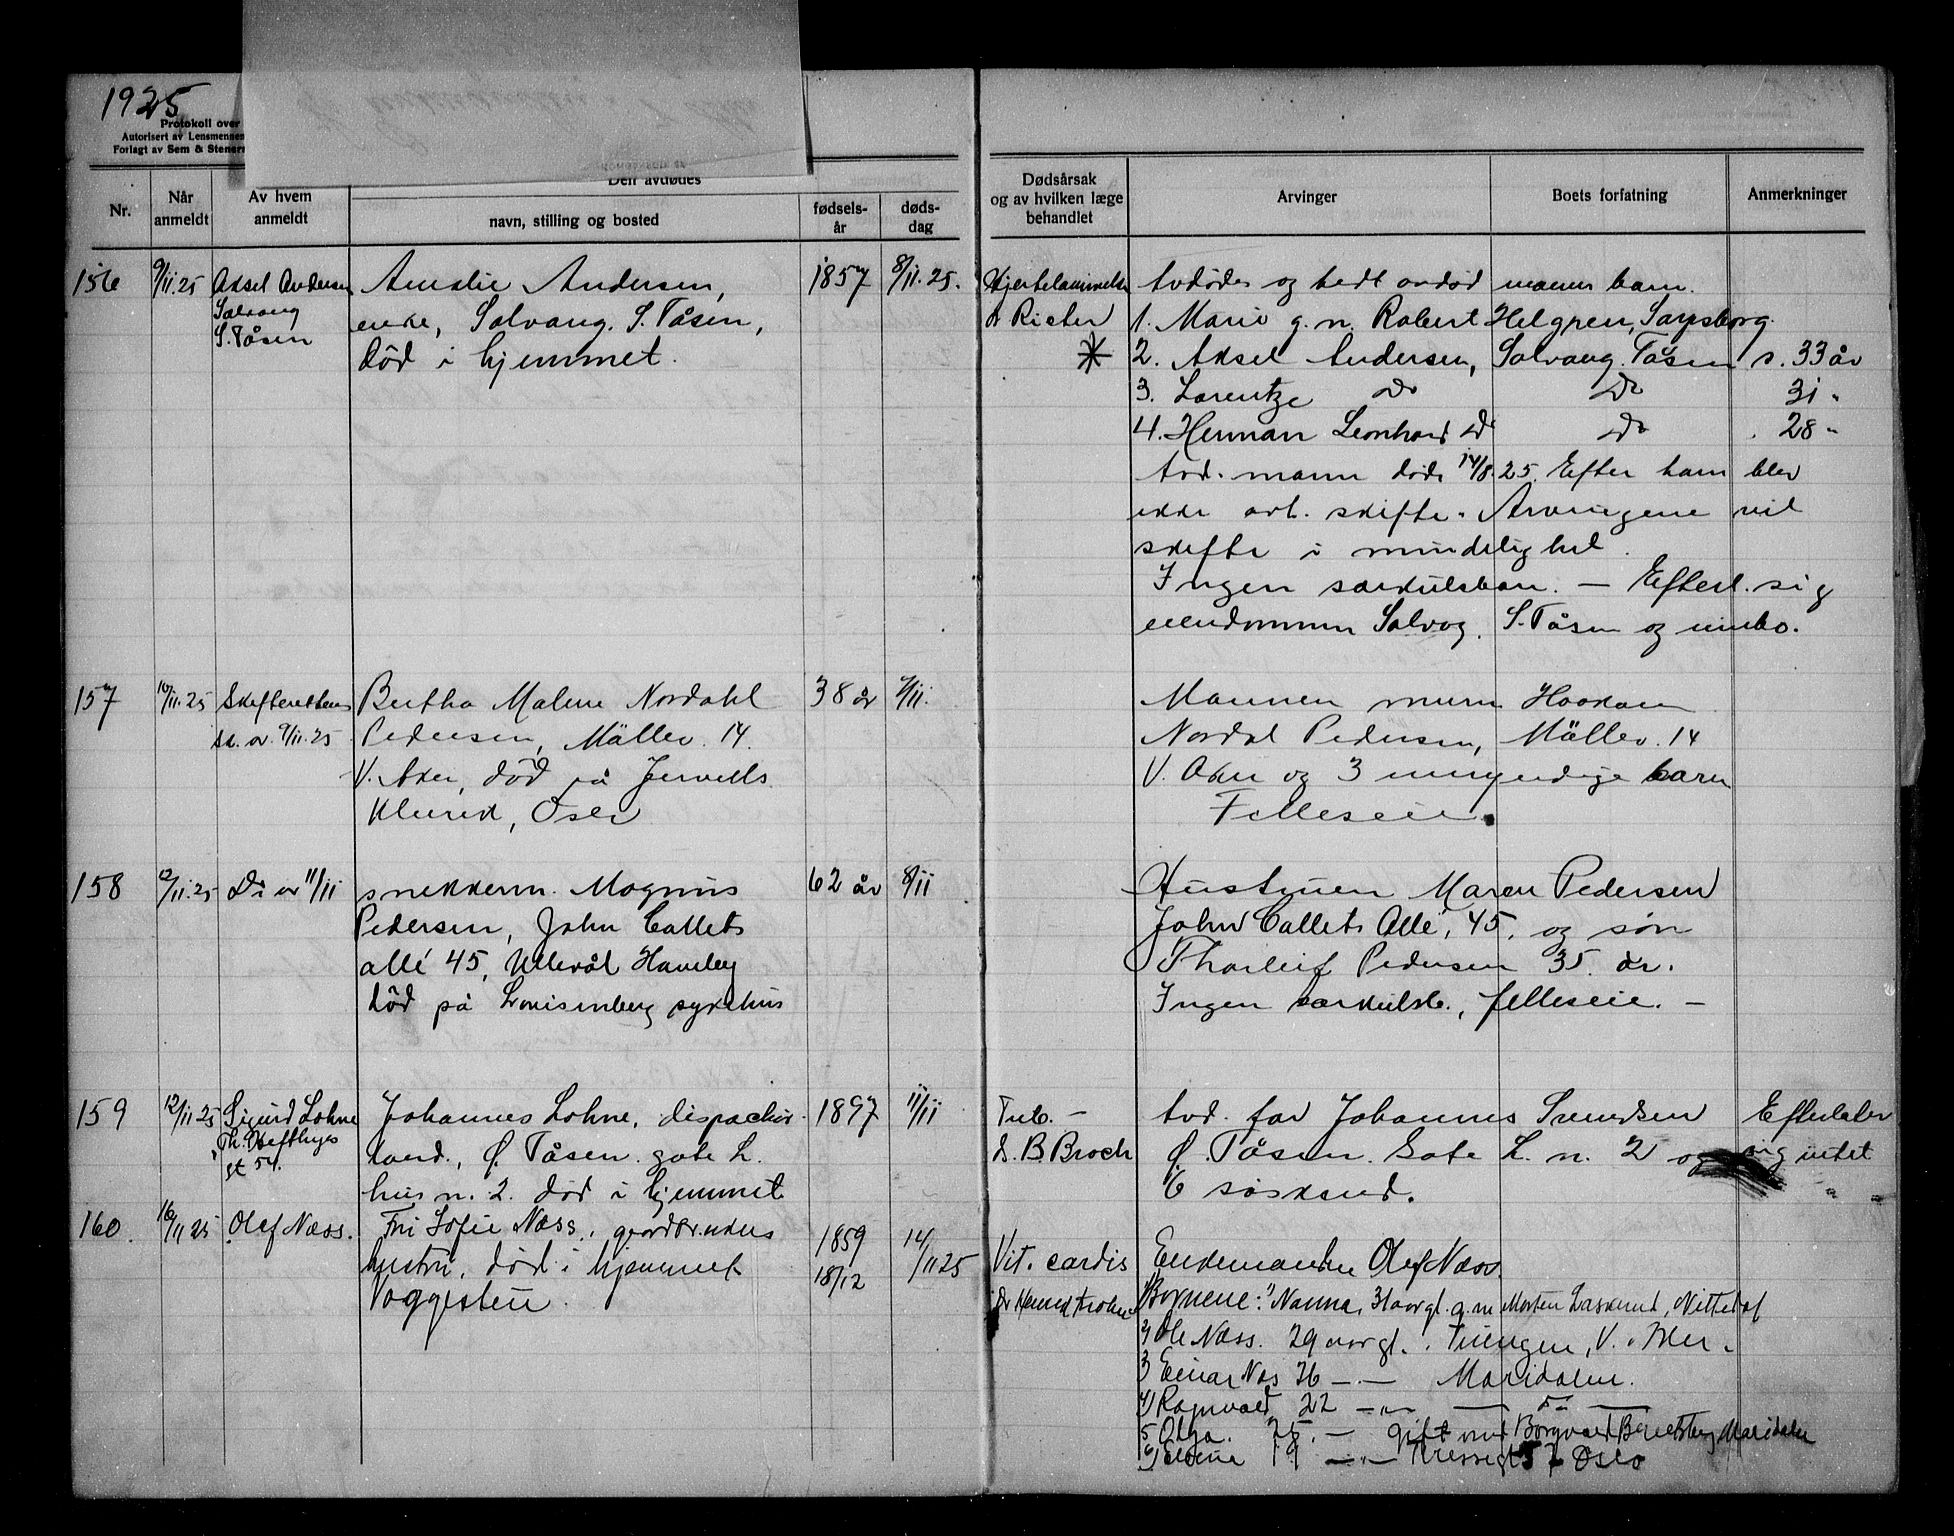 1925
Protokoll over
Autorisert av Lensmennenes
Forlagt av Sem & Stener
Nr.
Når anmeldt
Av hvem anmeldt
Den avdødes
navn, stilling og bosted
fødsels-år
døds-dag
Dødsårsak og av hvilken læge behandlet
Arvinger
Boets forfatning
Anmerkninger
156
9/11.25
Aksel Andersen
Solvang
S. Tåsen
Amalie Andersen,
enke, Solvang. S. Tåsen,
død i hjemmet.
1857
8/11.25.
Hjertelammelse
dr Richter
*
Avdødes og tidl. avdød manns barn.
1. Marie g.m. Robert Helgren, Sarpsborg.
2. Aksel Andersen, Solvang. Tåsen s. 33 år
3. Lorentze Do Do 31 "
4. Herman Leonhard Do Do 28 "
Avd. mann døde 14/8.25. Efter ham blev
ikke avh. skifte. Arvingene vil
skifte i mindelighet.
Ingen særkulsbarn. — Efterl. sig
eiendommen Solvog. S. Tåsen og innbo.
157
10/11.25
Skifterettens
sk. av 9/11.25
Bertha Malene Nordahl
Pedersen, Møllev. 14.
V. Aker, død på Jervells
Klinikk, Oslo
38 år
7/11.
Mannen murer Haakon
Nordal Pedersen, Møllev. 14
V. Aker og 3 umyndige barn
Felleseie.
158
12/11.25
Do av 11/11
snekkerm. Magnus
Pedersen, John Collets
allé 45, Ullevål Haveby
død på Lovisenberg sykehus
62 år
8/11
Hustruen Maren Pedersen
John Collets Allé, 45, og søn
Thorleif Pedersen 35 år.
Ingen særkulsb., felleseie. —
159
12/11.25
Sigurd Lohne
Th. Heftyes
gt 54.
Johannes Lohne, dispachør-
kand., Ø. Tåsen. gate L.
hus n. 2. død i hjemmet
1897
11/11
Tub. —
d. B. Broch
Avd. far Johannes Svendsen
Ø. Tåsen. Gate L. n. 2 og
6 søskend.
Efterlater
sig intet
" "
160.
16/11 25
Olef Næss.
Fru Sofie Næss, gårdbrukers
hustru, død i hjemmet
Vaggestein.
1859
18/12
14/11 25
Vit. cordis
Enkemannen Olef Næss.
Børnene: 1) Nanna, 31 aar gl. g. m. Morten Laskerud, Nittedal
2) Ole Næss. 29 aar gl. Tuengen, V. Aker.
3 Einar Næs 26 —"— Maridalen.
4) Ragnvald, 22 —"— — Do —
5 Olga. 25. — gift med Borgvard Berntsberg Maridalen
6) 19 —"— 57 Oslo